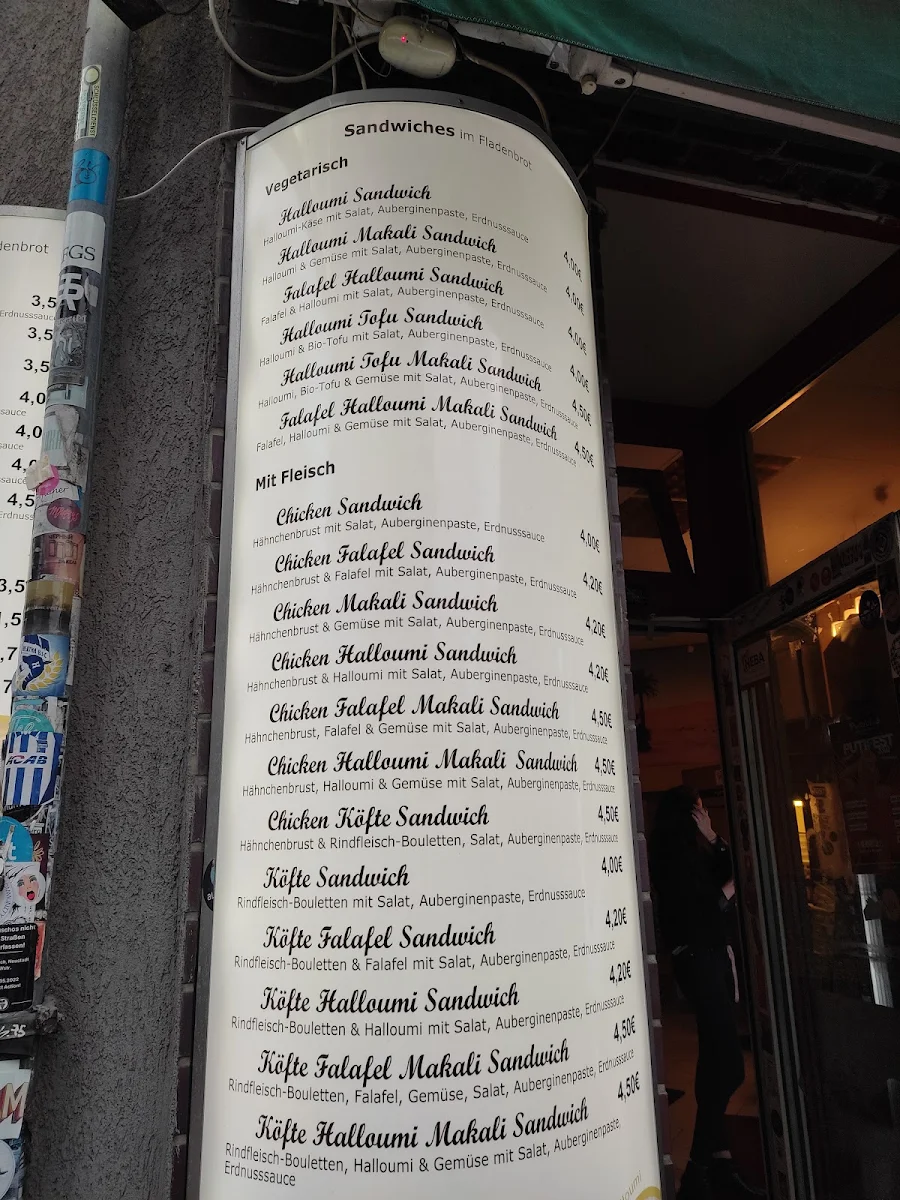 Sandwiches im Fladenbrot
Vegetarisch
Halloumi Sandwich
Halloumi-Käse mit Salat, Auberginenpaste, Erdnusssauce 4,00€
Halloumi Makali Sandwich
Halloumi & Gemüse mit Salat, Auberginenpaste, Erdnusssauce 4,00€
Falafel Halloumi Sandwich
Falafel & Halloumi mit Salat, Auberginenpaste, Erdnusssauce 4,00€
Halloumi Tofu Sandwich
Halloumi & Bio-Tofu mit Salat, Auberginenpaste, Erdnusssauce 4,00€
Halloumi Tofu Makali Sandwich
Halloumi, Bio-Tofu & Gemüse mit Salat, Auberginenpaste, Erdnusssauce 4,50€
Falafel Halloumi Makali Sandwich
Falafel, Halloumi & Gemüse mit Salat, Auberginenpaste, Erdnusssauce 4,50€
Mit Fleisch
Chicken Sandwich
Hähnchenbrust mit Salat, Auberginenpaste, Erdnusssauce 4,00€
Chicken Falafel Sandwich
Hähnchenbrust & Falafel mit Salat, Auberginenpaste, Erdnusssauce 4,20€
Chicken Makali Sandwich
Hähnchenbrust & Gemüse mit Salat, Auberginenpaste, Erdnusssauce 4,20€
Chicken Halloumi Sandwich
Hähnchenbrust & Halloumi mit Salat, Auberginenpaste, Erdnusssauce 4,20€
Chicken Falafel Makali Sandwich 4,50€
Hähnchenbrust, Falafel & Gemüse mit Salat, Auberginenpaste, Erdnusssauce
Chicken Halloumi Makali Sandwich 4,50€
Hähnchenbrust, Halloumi & Gemüse mit Salat, Auberginenpaste, Erdnusssauce
Chicken Köfte Sandwich 4,50€
Hähnchenbrust & Rindfleisch-Bouletten, Salat, Auberginenpaste, Erdnusssauce
Köfte Sandwich 4,00€
Rindfleisch-Bouletten mit Salat, Auberginenpaste, Erdnusssauce
Köfte Falafel Sandwich 4,20€
Rindfleisch-Bouletten & Falafel mit Salat, Auberginenpaste, Erdnusssauce
Köfte Halloumi Sandwich 4,20€
Rindfleisch-Bouletten & Halloumi mit Salat, Auberginenpaste, Erdnusssauce
Köfte Falafel Makali Sandwich 4,50€
Rindfleisch-Bouletten, Falafel, Gemüse, Salat, Auberginenpaste, Erdnusssauce
Köfte Halloumi Makali Sandwich 4,50€
Rindfleisch-Bouletten, Halloumi & Gemüse mit Salat, Auberginenpaste
Erdnusssauce
denbrot
3,5
Erdnusssauce
3,5
3,5
4,0
sauce
4,0
sauce
4,0
sauce
4,5
Erdnuss
3,5
FGS
HCAB
Straßen